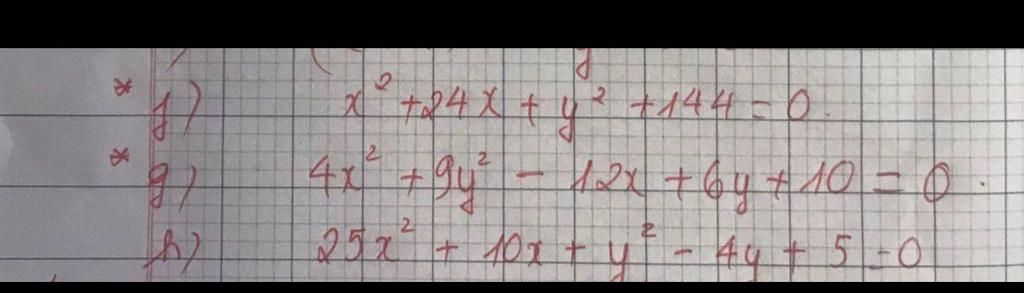 * f) x² + 24x + y² + 144 = 0.
* g) 4x² + 9y² - 12x + 6y + 10 = 0.
h) 25x² + 10x + y² - 4y + 5 = 0